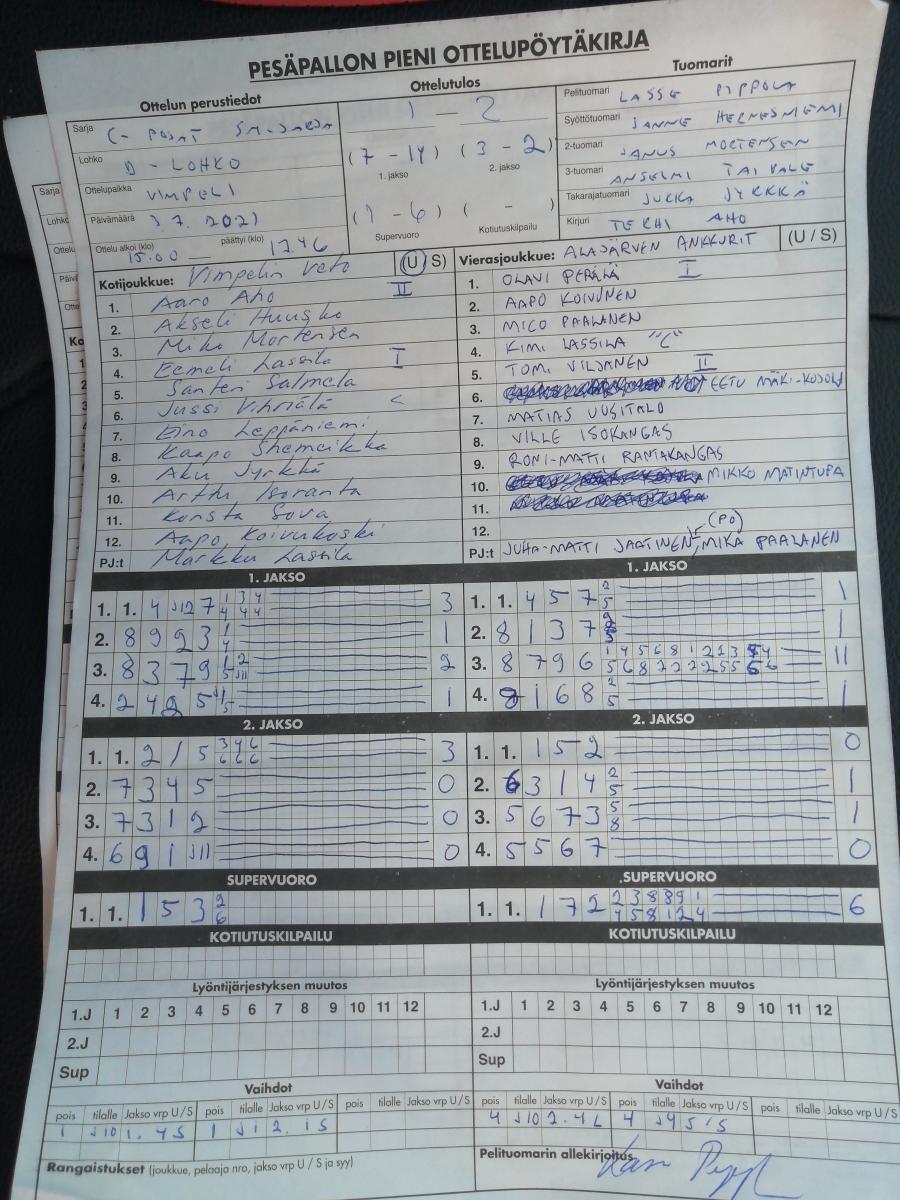 PESÄPALLON PIENI OTTELUPÖYTÄKIRJA
Ottelun perustiedot
Ottelutulos
Tuomarit
Sarja C-POJAT SM-SARJA
Lohko D-LOHKO
Ottelupaikka VIMPELI
Päivämäärä 3.7.2021
Ottelu alkoi (klo) 15.00 päättyi (klo) 17.46
1 - 2
(7 - 14) (3 - 2)
1. jakso 2. jakso
(1 - 6) ( - )
Supervuoro Kotiutuskilpailu
Pelituomari LASSE PIPPOLA
Syöttötuomari JANNE HERNESNIEMI
2-tuomari JANUS MORTENSEN
3-tuomari ANSELMI TAIPALE
Takarajatuomari JUKKA JYRKKÄ
Kirjuri TERHI AHO
Kotijoukkue: Vimpelin Veto (U/S)
1. Aaro Aho II
2. Akseli Huusko
3. Miko Mortensen
4. Eemeli Lassila I
5. Santeri Salmela
6. Jussi Vihriälä C
7. Eino Leppäniemi
8. Kaapo Shemeikka
9. Aku Jyrkkä
10. Arttu Isoranta
11. Konsta Sova
12. Aapo Koivukoski
PJ:t Markku Lassila
Vierasjoukkue: ALAJÄRVEN ANKKURIT (U / S)
1. OLAVI PERÄLÄ I
2. AAPO KOIVUNEN
3. MICO PAALANEN
4. KIMI LASSILA "C"
5. TOMI VILJANEN II
6. EETU MÄKI-KOJOLA
7. MATIAS UUSITALO
8. VILLE ISOKANGAS
9. RONI-MATTI RANTAKANGAS
10. MIKKO MATINTUPA
11.
12. (PO)
PJ:t JUHA-MATTI JAATINEN, MIKA PAALANEN
1. JAKSO
1. 1. 4 J12 7 1 3 4 3
4 4 4
2. 8 9 2 3 1 1
4
3. 8 3 7 9 1 2 2
5 J11
4. 2 4 8 5 1
1. JAKSO
1. 1. 4 5 7 2 1
5
2. 8 1 3 7 1
3. 8 7 9 6 1 4 5 6 8 1 2 2 3 4 11
5 6 8 2 2 2 2 5 5 6 6
4. 8 1 6 8 2 1
5
2. JAKSO
1. 1. 2 1 5 3 4 6 3
6 6 6
2. 7 3 4 5 0
3. 7 3 1 2 0
4. 6 9 1 J11 0
2. JAKSO
1. 1. 1 5 2 0
2. 6 3 1 4 2 1
5
3. 5 6 7 3 5 1
8
4. 5 5 6 7 0
SUPERVUORO
1. 1. 1 5 3 2
6
SUPERVUORO
1. 1. 1 7 2 2 3 8 8 9 1 6
4 5 8 1 2 4
KOTIUTUSKILPAILU
KOTIUTUSKILPAILU
Lyöntijärjestyksen muutos
1.J 1 2 3 4 5 6 7 8 9 10 11 12
2.J
Sup
Lyöntijärjestyksen muutos
1.J 1 2 3 4 5 6 7 8 9 10 11 12
2.J
Sup
Vaihdot
pois tilalle Jakso vrp U/S pois tilalle Jakso vrp U/S pois tilalle Jakso vrp U/S
1 J10 1. 4S 1 J1 2. 1S
Vaihdot
pois tilalle Jakso vrp U/S pois tilalle Jakso vrp U/S pois tilalle Jakso vrp U/S
4 J10 2. 4L 4 J4 S 1S
Rangaistukset (joukkue, pelaaja nro, jakso vrp U / S ja syy)
Pelituomarin allekirjoitus